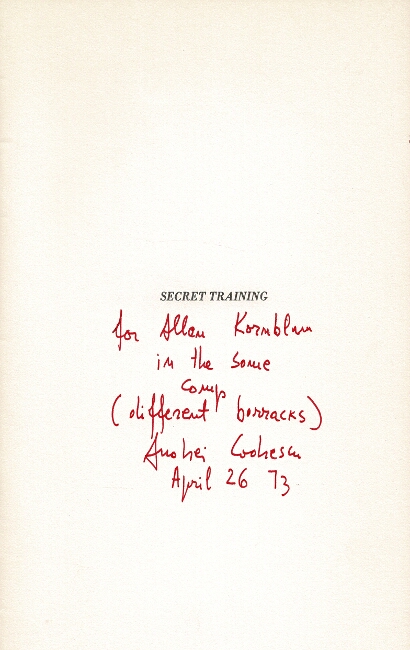 SECRET TRAINING
for Allan Kornblum
in the same
camp
(different barracks)
Andrei Codrescu
April 26 73